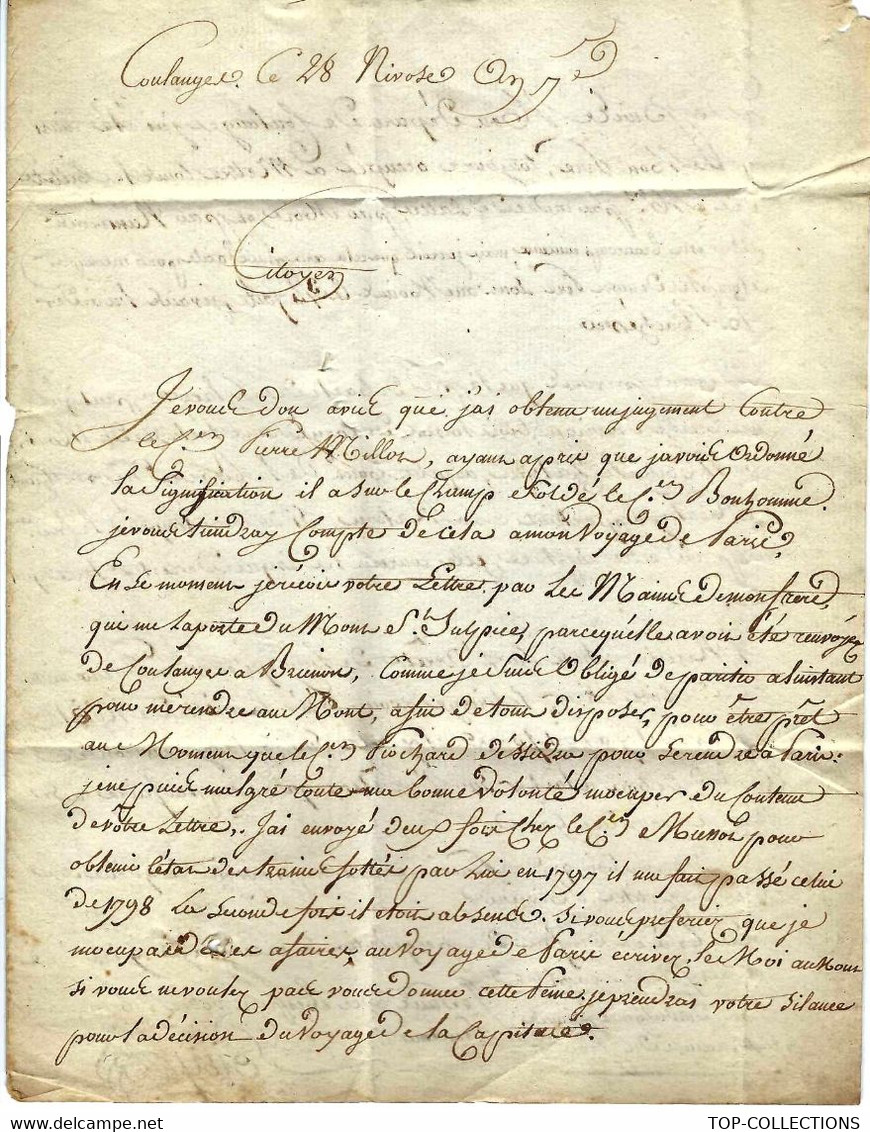 Coulanges. Ce 28 Nivose An 7e
Citoyen
Je vous don avis que j'ai obtenu un jugement Contre
le C.en Pierre Millon, ayant apris que javois ordonné
la signification il a sur le Champ soldé le C.en Bonhomme.
je vous tiendray Compte de cela a mon Voyage de Paris.
En ce moment je reçois votre Lettre par les Mains de mon frere,
qui me laporte du Mont St. Sulpice, parcequ'elle avoit été renvoyée
de Coulanges a Brienon, Comme je suis Obligé de partir alinstant
pour me rendre au Mont, afin de tout disposer, pour être prêt
au Moment que le C.en Piochard déssidra pour se rendre a Paris:
je ne puis malgré toute ma bonne volonté mocuper du Contenu
de vôtre Lettre,. J'ai envoyé deux fois Chez le C.en Musson pour
obtenir l'état des trains flottés par Lui en 1797 il ma fait passé celui
de 1798 La seconde fois il etoit absend. Si vous preferiez que je
mocupai de ses afaires, au Voyage de Paris écrivez le Moi au Mont
si vous ne voulez pas vous donner cette Peine. je prendrai votre silance
pour la décision du Voyage de la Capitale.
TOP-COLLECTIONS